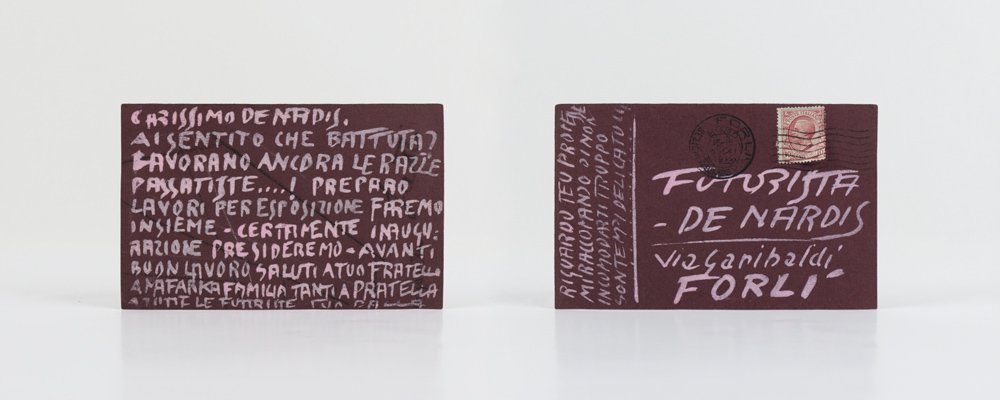 CARISSIMO DE NARDIS.
AI SENTITO CHE BATTUTA?
LAVORANO ANCORA LE RAZZE
PASSATISTE.... I PREPARO
LAVORI PER ESPOSIZIONE FAREMO
INSIEME - CERTAMENTE INAUGU-
RAZIONE PRESIDEREMO - AVANTI
BUON LAVORO SALUTI A TUO FRATELLO
FAMIGLIA TANTI A PRATELLA
A TUTTE LE FUTURISTE
RIGUARDO TEU PROTE
MI RACCOMANDO DI NON
INCOMODARTI TROPPO
SONTE MPI DELICATO
FORLI
FUTURISTA
- DE NARDIS
Via Garibaldi
FORLI'